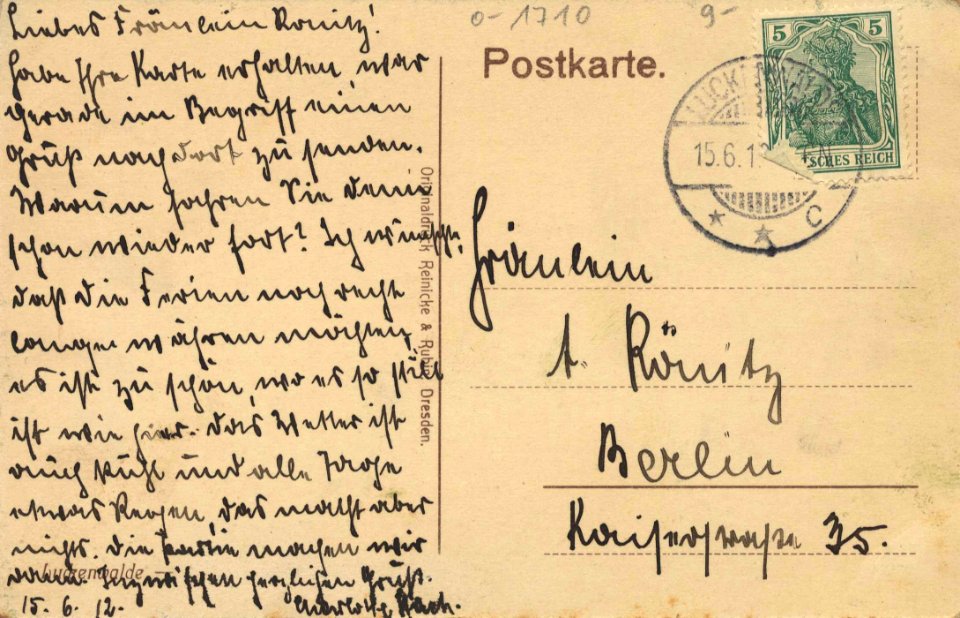 Liebes Fräulein Könitz!
Habe Ihre Karte erhalten, war
gerade im Begriff einen
Gruß nach dort zu senden.
Warum fahren Sie denn
schon wieder fort? Ich wünschte,
daß die Ferien noch recht
lange währen möchten,
es ist zu schön, wo es so still
ist wie hier. Das Wetter ist
auch kühl und alle Tage
etwas Regen, das macht aber
nichts. Die Partie machen wir
dann. Inzwischen herzlichen Gruß.
15. 6. 12. Charlotte
Luckenwalde
Originaldruck Reinicke & Rubin, Dresden.
0-1710
9-
Postkarte.
5 5
DEUTSCHES REICH
LUCKENWALDE
15.6.1
N
* * C
Fräulein
t. Könitz
Berlin
Kaiserstraße 35.